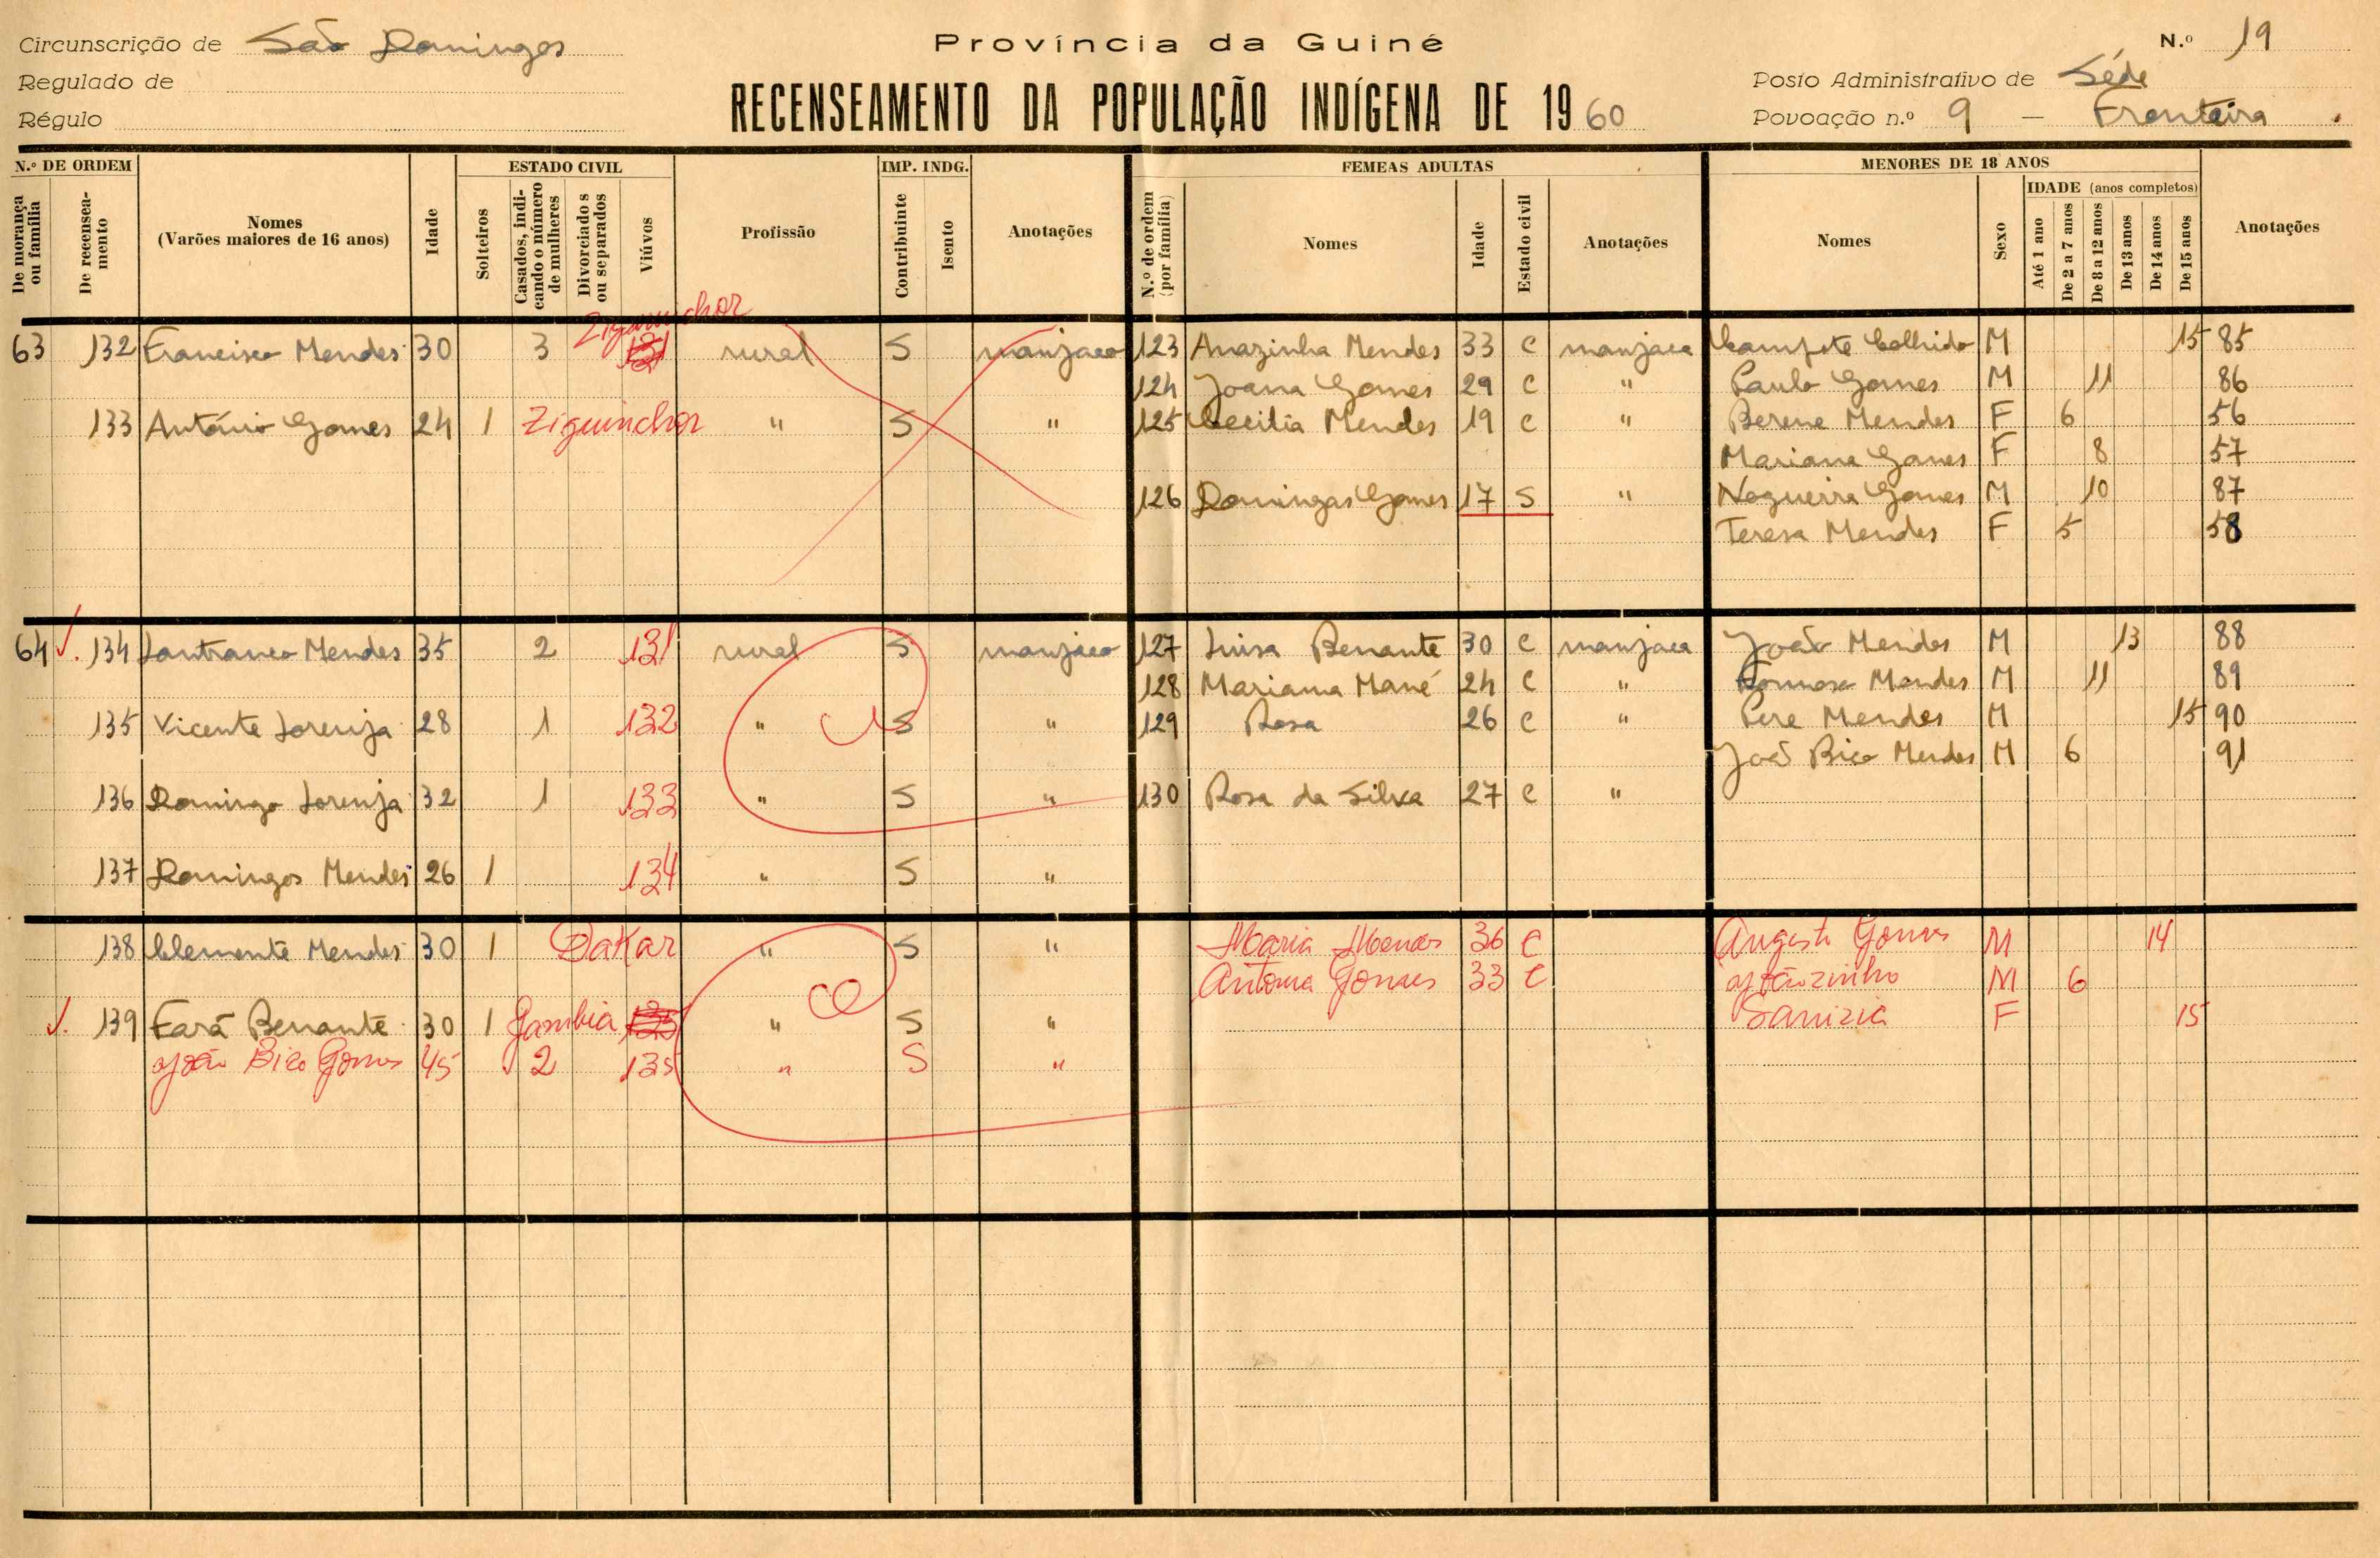 Circunscrição de São Domingos
Província da Guiné
N.º 19
Regulado de
Posto Administrativo de Séde
Régulo
RECENSEAMENTO DA POPULAÇÃO INDÍGENA DE 1960
Povoação n.º 9 — Fronteira
N.º DE ORDEM
De morança ou família
De recenseamento
Nomes
(Varões maiores de 16 anos)
Idade
ESTADO CIVIL
Solteiros
Casados, indicando o número de mulheres
Divorciados ou separados
Viúvos
Profissão
IMP. INDG.
Contribuinte
Isento
Anotações
FEMEAS ADULTAS
N.º de ordem (por família)
Nomes
Idade
Estado civil
Anotações
MENORES DE 18 ANOS
Nomes
Sexo
IDADE (anos completos)
Até 1 ano
De 2 a 7 anos
De 8 a 12 anos
De 13 anos
De 14 anos
De 15 anos
Anotações
Ziguinchor
63 132 Francisco Mendes 30 3 131 rural S manjaco 123 Anazinha Mendes 33 C manjaca M 15 85
124 Joana Gomes 29 C " Paulo Gomes M 11 86
133 António Gomes 24 1 Ziguinchor " S " 125 Cecilia Mendes 19 C " Berene Mendes F 6 56
Mariana Gomes F 8 57
126 Domingas Gomes 17 S " Nogueira Gomes M 10 87
Teresa Mendes F 5 58
64 134 Lantranco Mendes 35 2 131 rural S manjaco 127 Luisa Benante 30 C manjaca João Mendes M 13 88
128 Mariama Mané 24 C " Mendes M 11 89
135 Vicente Lorenja 28 1 132 " S " 129 Rosa 26 C " Pere Mendes M 15 90
João Bico Mendes M 6 91
136 Domingo Lorenja 32 1 133 " S " 130 Rosa da Silva 27 C "
137 Domingos Mendes 26 1 134 " S "
138 Clemente Mendes 30 1 Dakar " S " Maria Mendes 36 C Augusto Gomes M 14
Antónia Gomes 33 C Joãozinho M 6
139 Fará Benante 30 1 Gambia 135 " S " F 15
João Bico Gomes 45 2 135 " S "